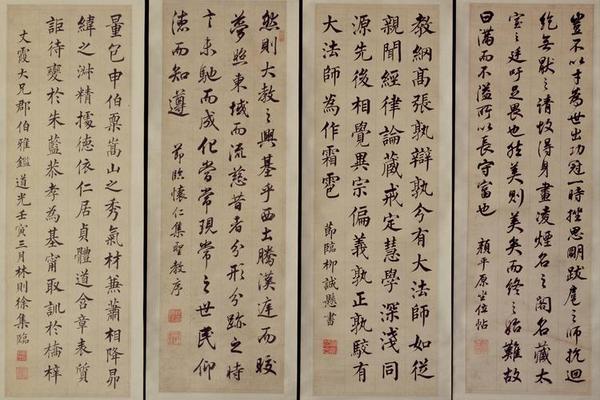 豈不以才為世出功冠一時挫思明跋扈之師抗迴
紇無猒之請故得身畫凌煙之閣名藏太
室之廷吁足畏也然美則美矣而終之始難故
曰滿而不溢所以長守富也 顏平原坐位帖
教網高張孰辯孰分有大法師如從
親聞經律論藏戒定慧學深淺同
源先後相覺異宗偏義孰正孰駁有
大法師為作霜雹 節臨柳誠懸書
然則大教之興基乎西土騰漢庭而皎
夢照東域而流慈昔者分形分跡之時
言未馳而成化當常現常之世民仰
德而知遵 節臨懷仁集聖教序
量包申伯稟嵩山之秀氣材兼蕭相降昴
緯之淑精據德依仁居貞體道含章表質
詎待變於朱藍恭孝為基甯取訓於橋梓
文霞大兄郡伯雅鑑道光壬寅三月林則徐集臨